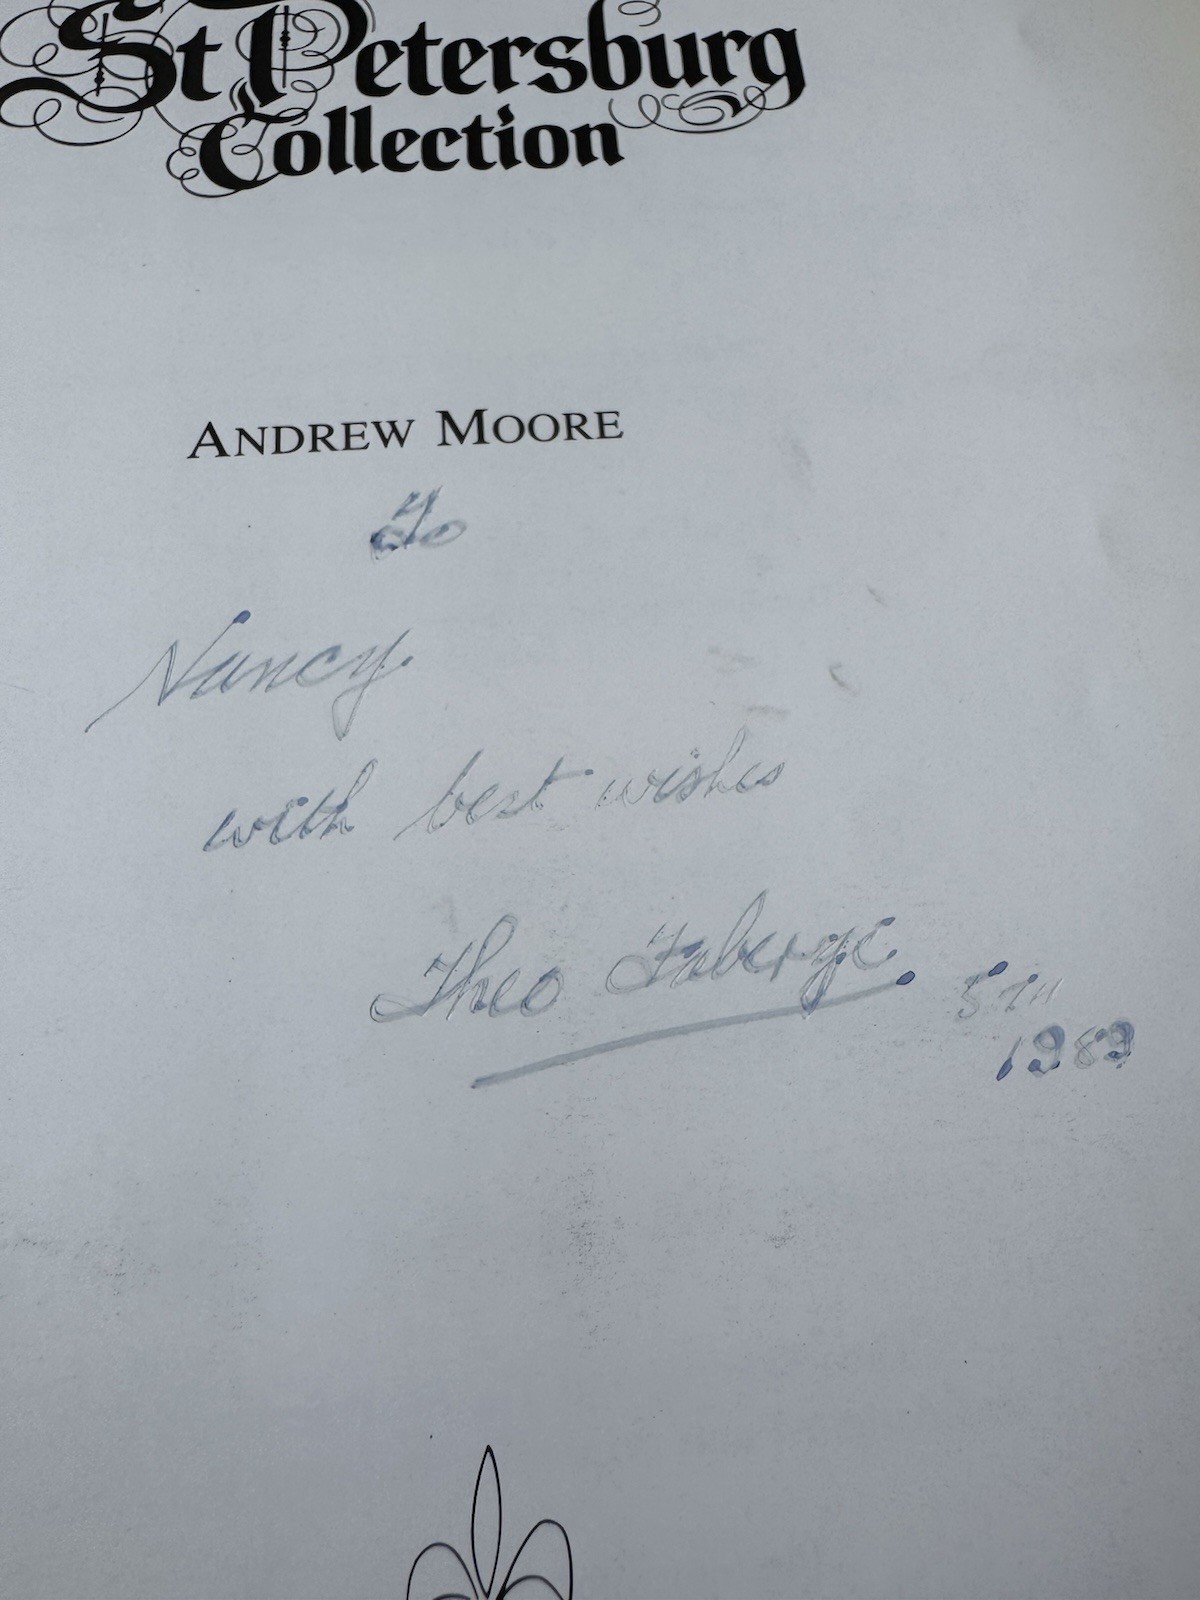 St Petersburg
Collection
ANDREW MOORE
To
Nancy.
with best wishes
Theo Faberge.
1989